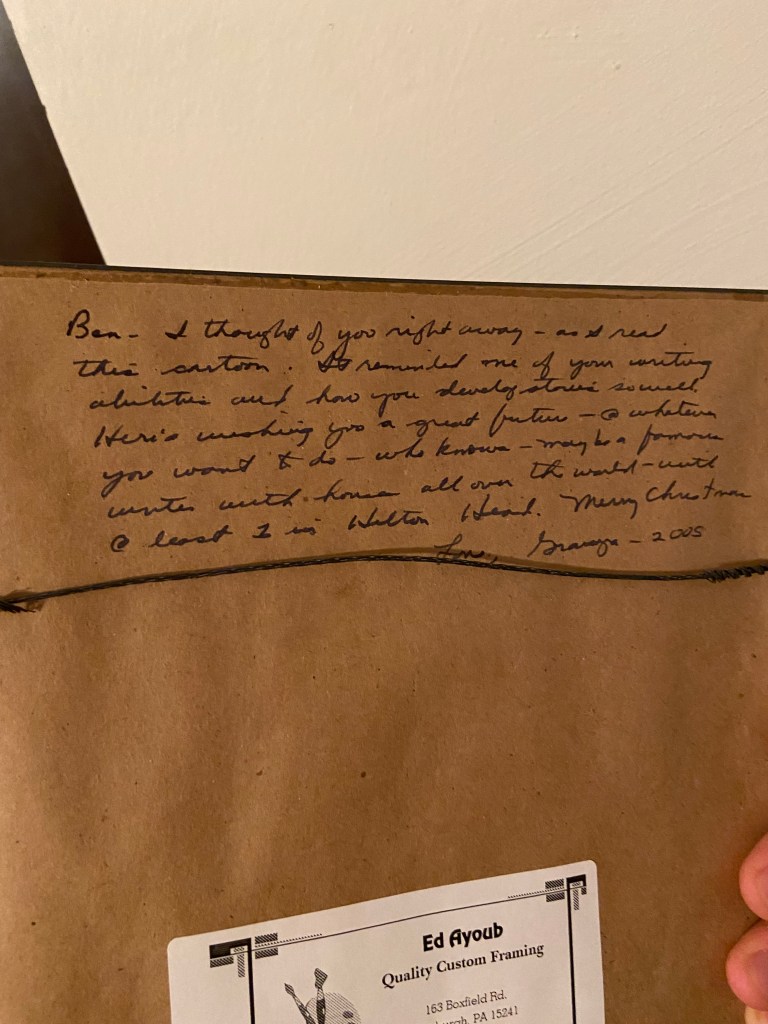 Ben - I thought of you right away - as I read
this cartoon. It reminded me of your writing
abilities and how you develop stories so well.
Here's wishing you a great future - @ whatever
you want to do - who knows - maybe a famous
writer with homes all over the world - with
@ least 1 in Hilton Head. Merry Christmas
Love, - 2005
Ed Ayoub
Quality Custom Framing
163 Boxfield Rd.
burgh, PA 15241